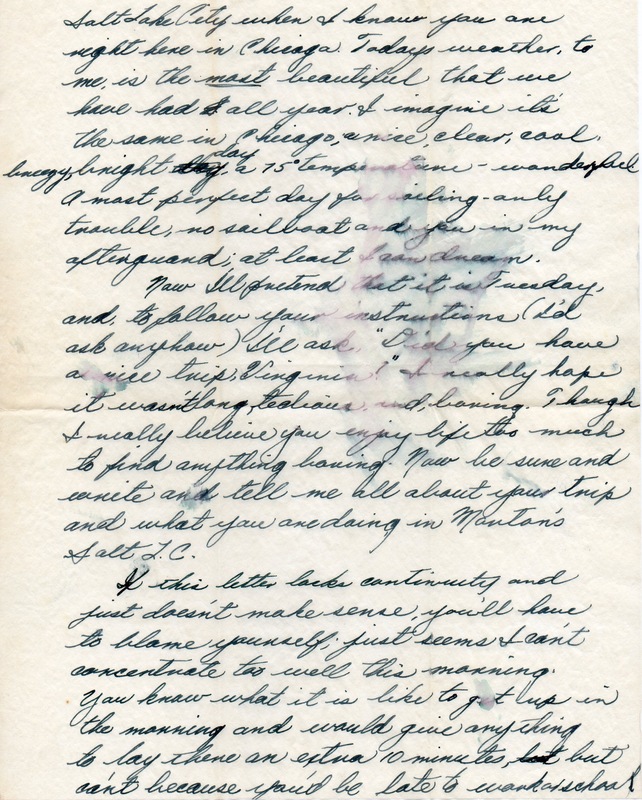 Salt Lake City when I know you are
right here in Chicago. Todays weather, to
me, is the most beautiful that we
have had all year. I imagine it's
the same in Chicago, a nice, clear, cool,
breezy, bright day, a 75° temperature - wonderful
A most perfect day for sailing - only
trouble, no sailboat and you in my
afterguard; at least I can dream.
Now I'll pretend that it is Tuesday,
and, to follow your instructions (I'd
ask anyhow) I'll ask, "Did you have
a nice trip, Virginia?" I really hope
it wasn't long, tedious, and, boring. Though
I really believe you enjoy life too much
to find anything boring. Now be sure and
write and tell me all about your trip
and what you are doing in Morton's
Salt L.C.
If this letter lacks continuity and
just doesn't make sense, you'll have
to blame yourself; just seems I can't
concentrate too well this morning.
You know what it is like to get up in
the morning and would give anything
to lay there an extra 10 minutes, but
can't because you'd be late to work or school